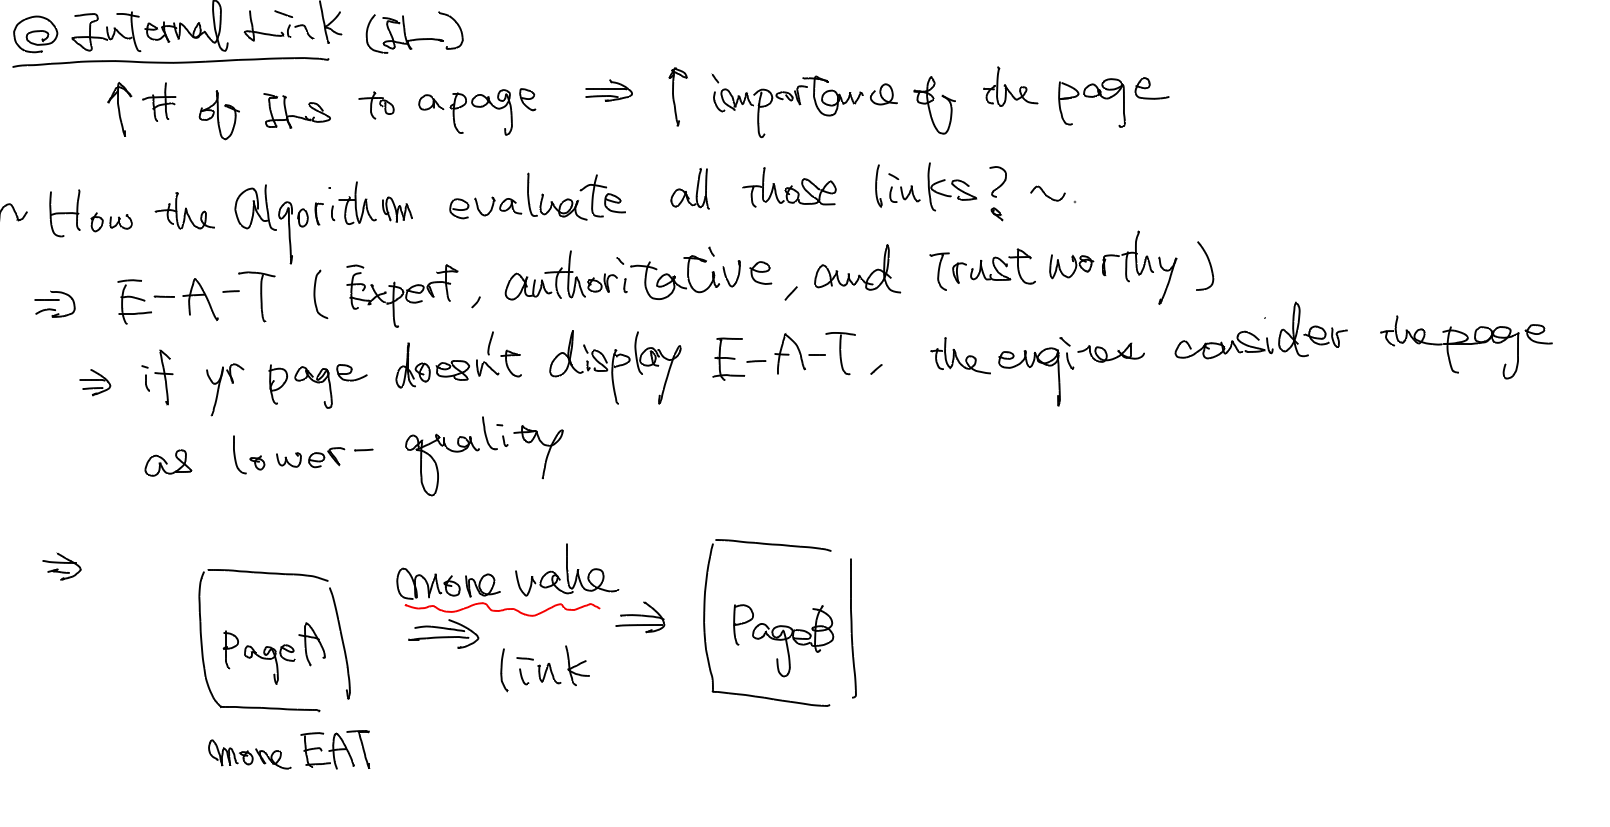 @ Internal Link (IL)
↑ # of ILs to a page ⇒ ↑ importance of the page
~ How the Algorithm evaluate all those links? ~.
⇒ E-A-T (Expert, authoritative, and Trustworthy)
⇒ if yr page doesn't display E-A-T, the engines consider the page
as lower-quality
⇒ more value
Page A ⇒ link ⇒ Page B
more EAT